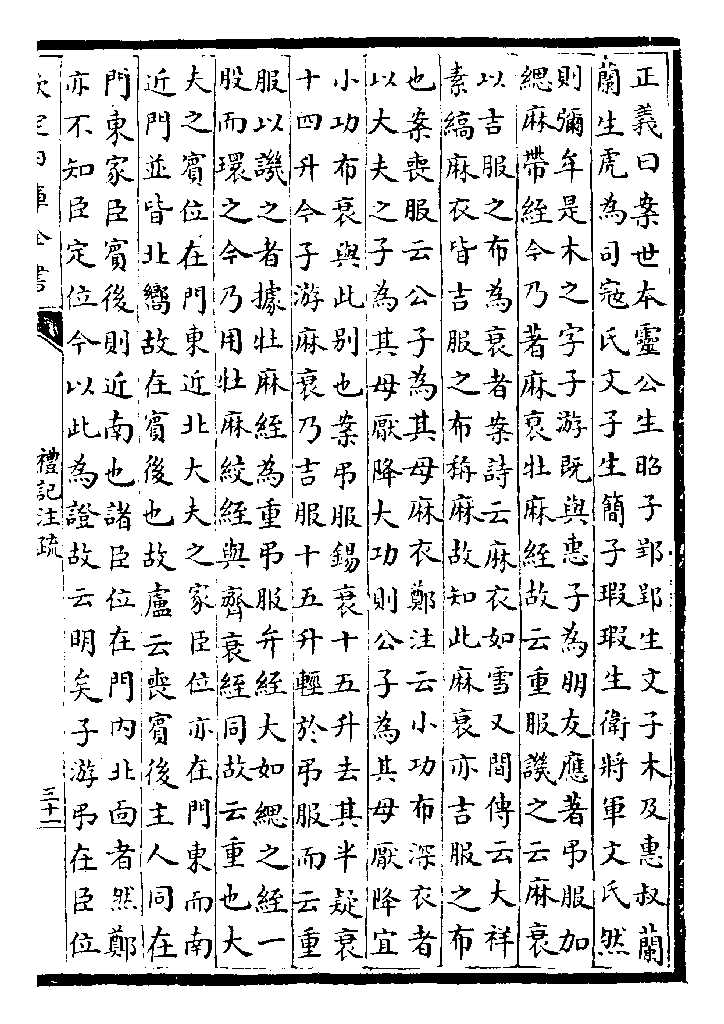 正義曰案世本靈公生昭子郢郢生文子木及惠叔蘭
蘭生虎為司寇氏文子生簡子瑕瑕生衛將軍文氏然
則彌牟是木之字子游既與惠子為朋友應著弔服加
緦麻帶絰今乃著麻衰牡麻絰故云重服譏之云麻衰
以吉服之布為衰者案詩云麻衣如雪又間傳云大祥
素縞麻衣皆吉服之布稱麻故知此麻衰亦吉服之布
也案喪服云公子為其母麻衣鄭注云小功布深衣者
以大夫之子為其母厭降大功則公子為其母厭降宜
小功布衰與此别也案弔服錫衰十五升去其半疑衰
十四升今子游麻衰乃吉服十五升輕於弔服而云重
服以譏之者據牡麻絰為重弔服弁絰大如緦之絰一
股而環之今乃用牡麻絞絰與齊衰絰同故云重也大
夫之賓位在門東近北大夫之家臣位亦在門東而南
近門並皆北嚮故在賓後也故盧云喪賓後主人同在
門東家臣賓後則近南也諸臣位在門内北面者然鄭
亦不知臣定位今以此為證故云明矣子游弔在臣位
欽定四庫全書
禮記注疏
三十二